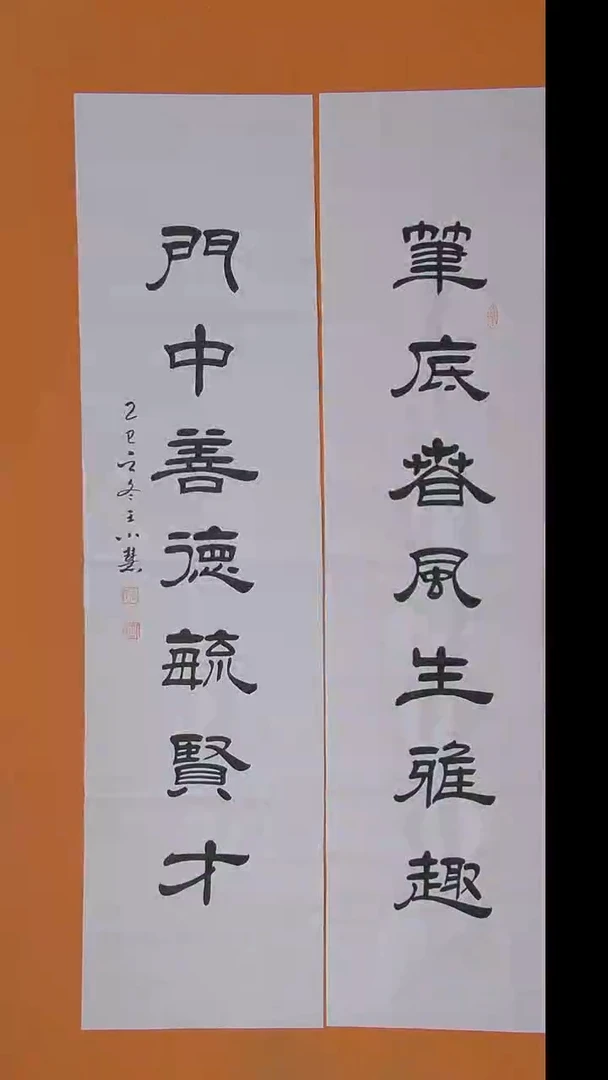 筆底春風生雅趣
門中善德毓賢才
乙巳之冬王小慧